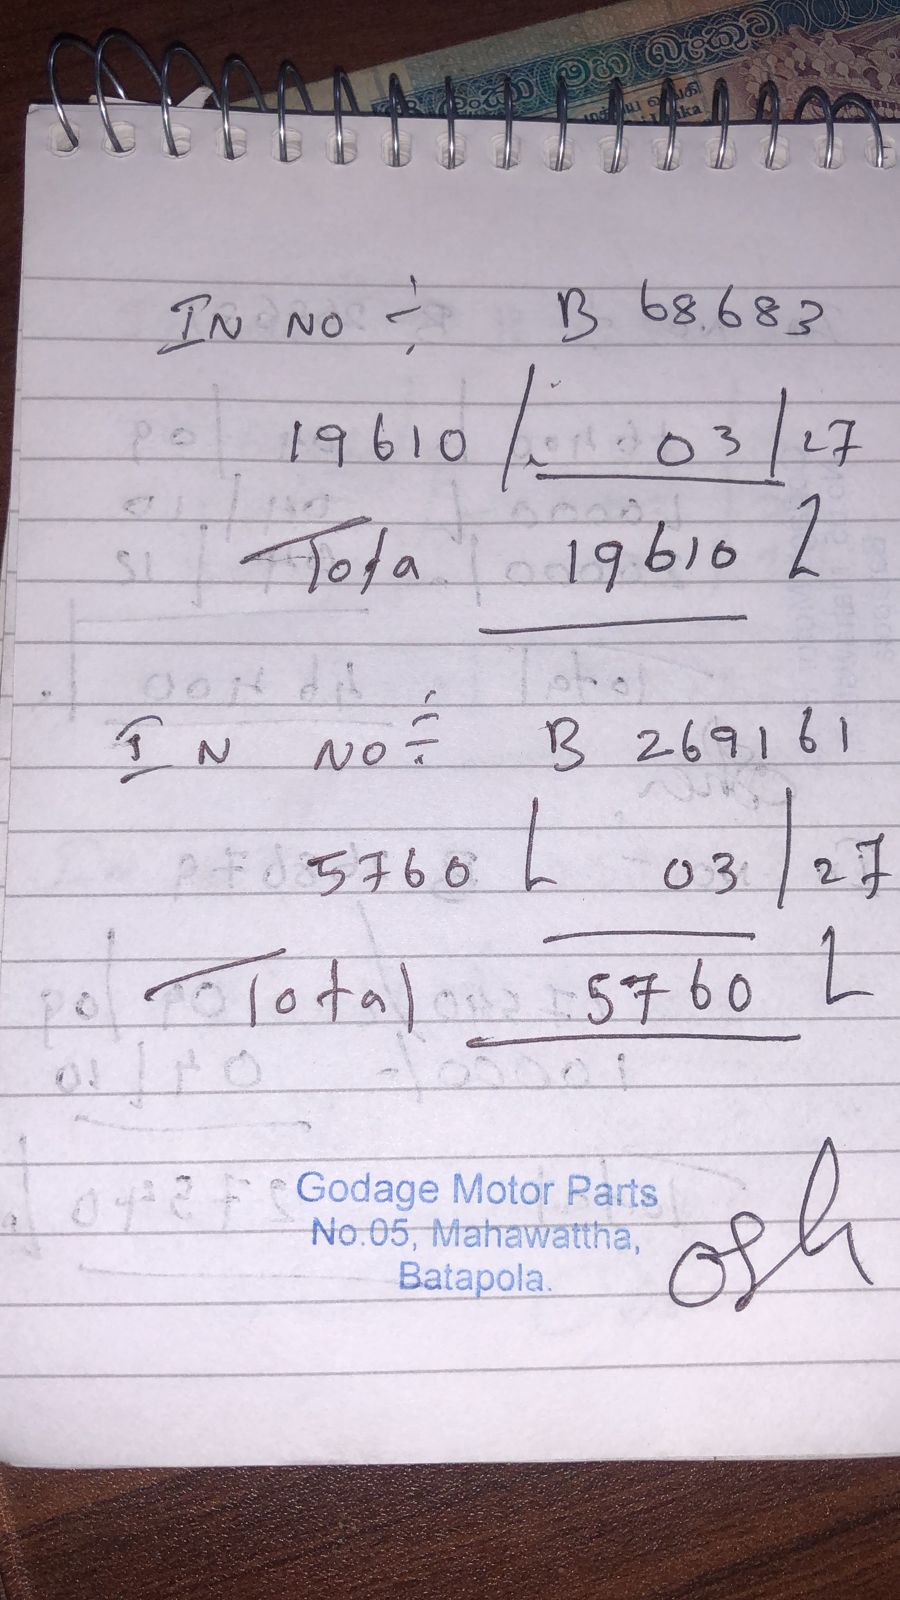 IN NO ÷ B 68.683
19610 /. 03/27
Tota 19610 L
IN NO ÷ B 269161
5760 L 03/27
Total 5760 L
Godage Motor Parts
No.05, Mahawattha,
Batapola.